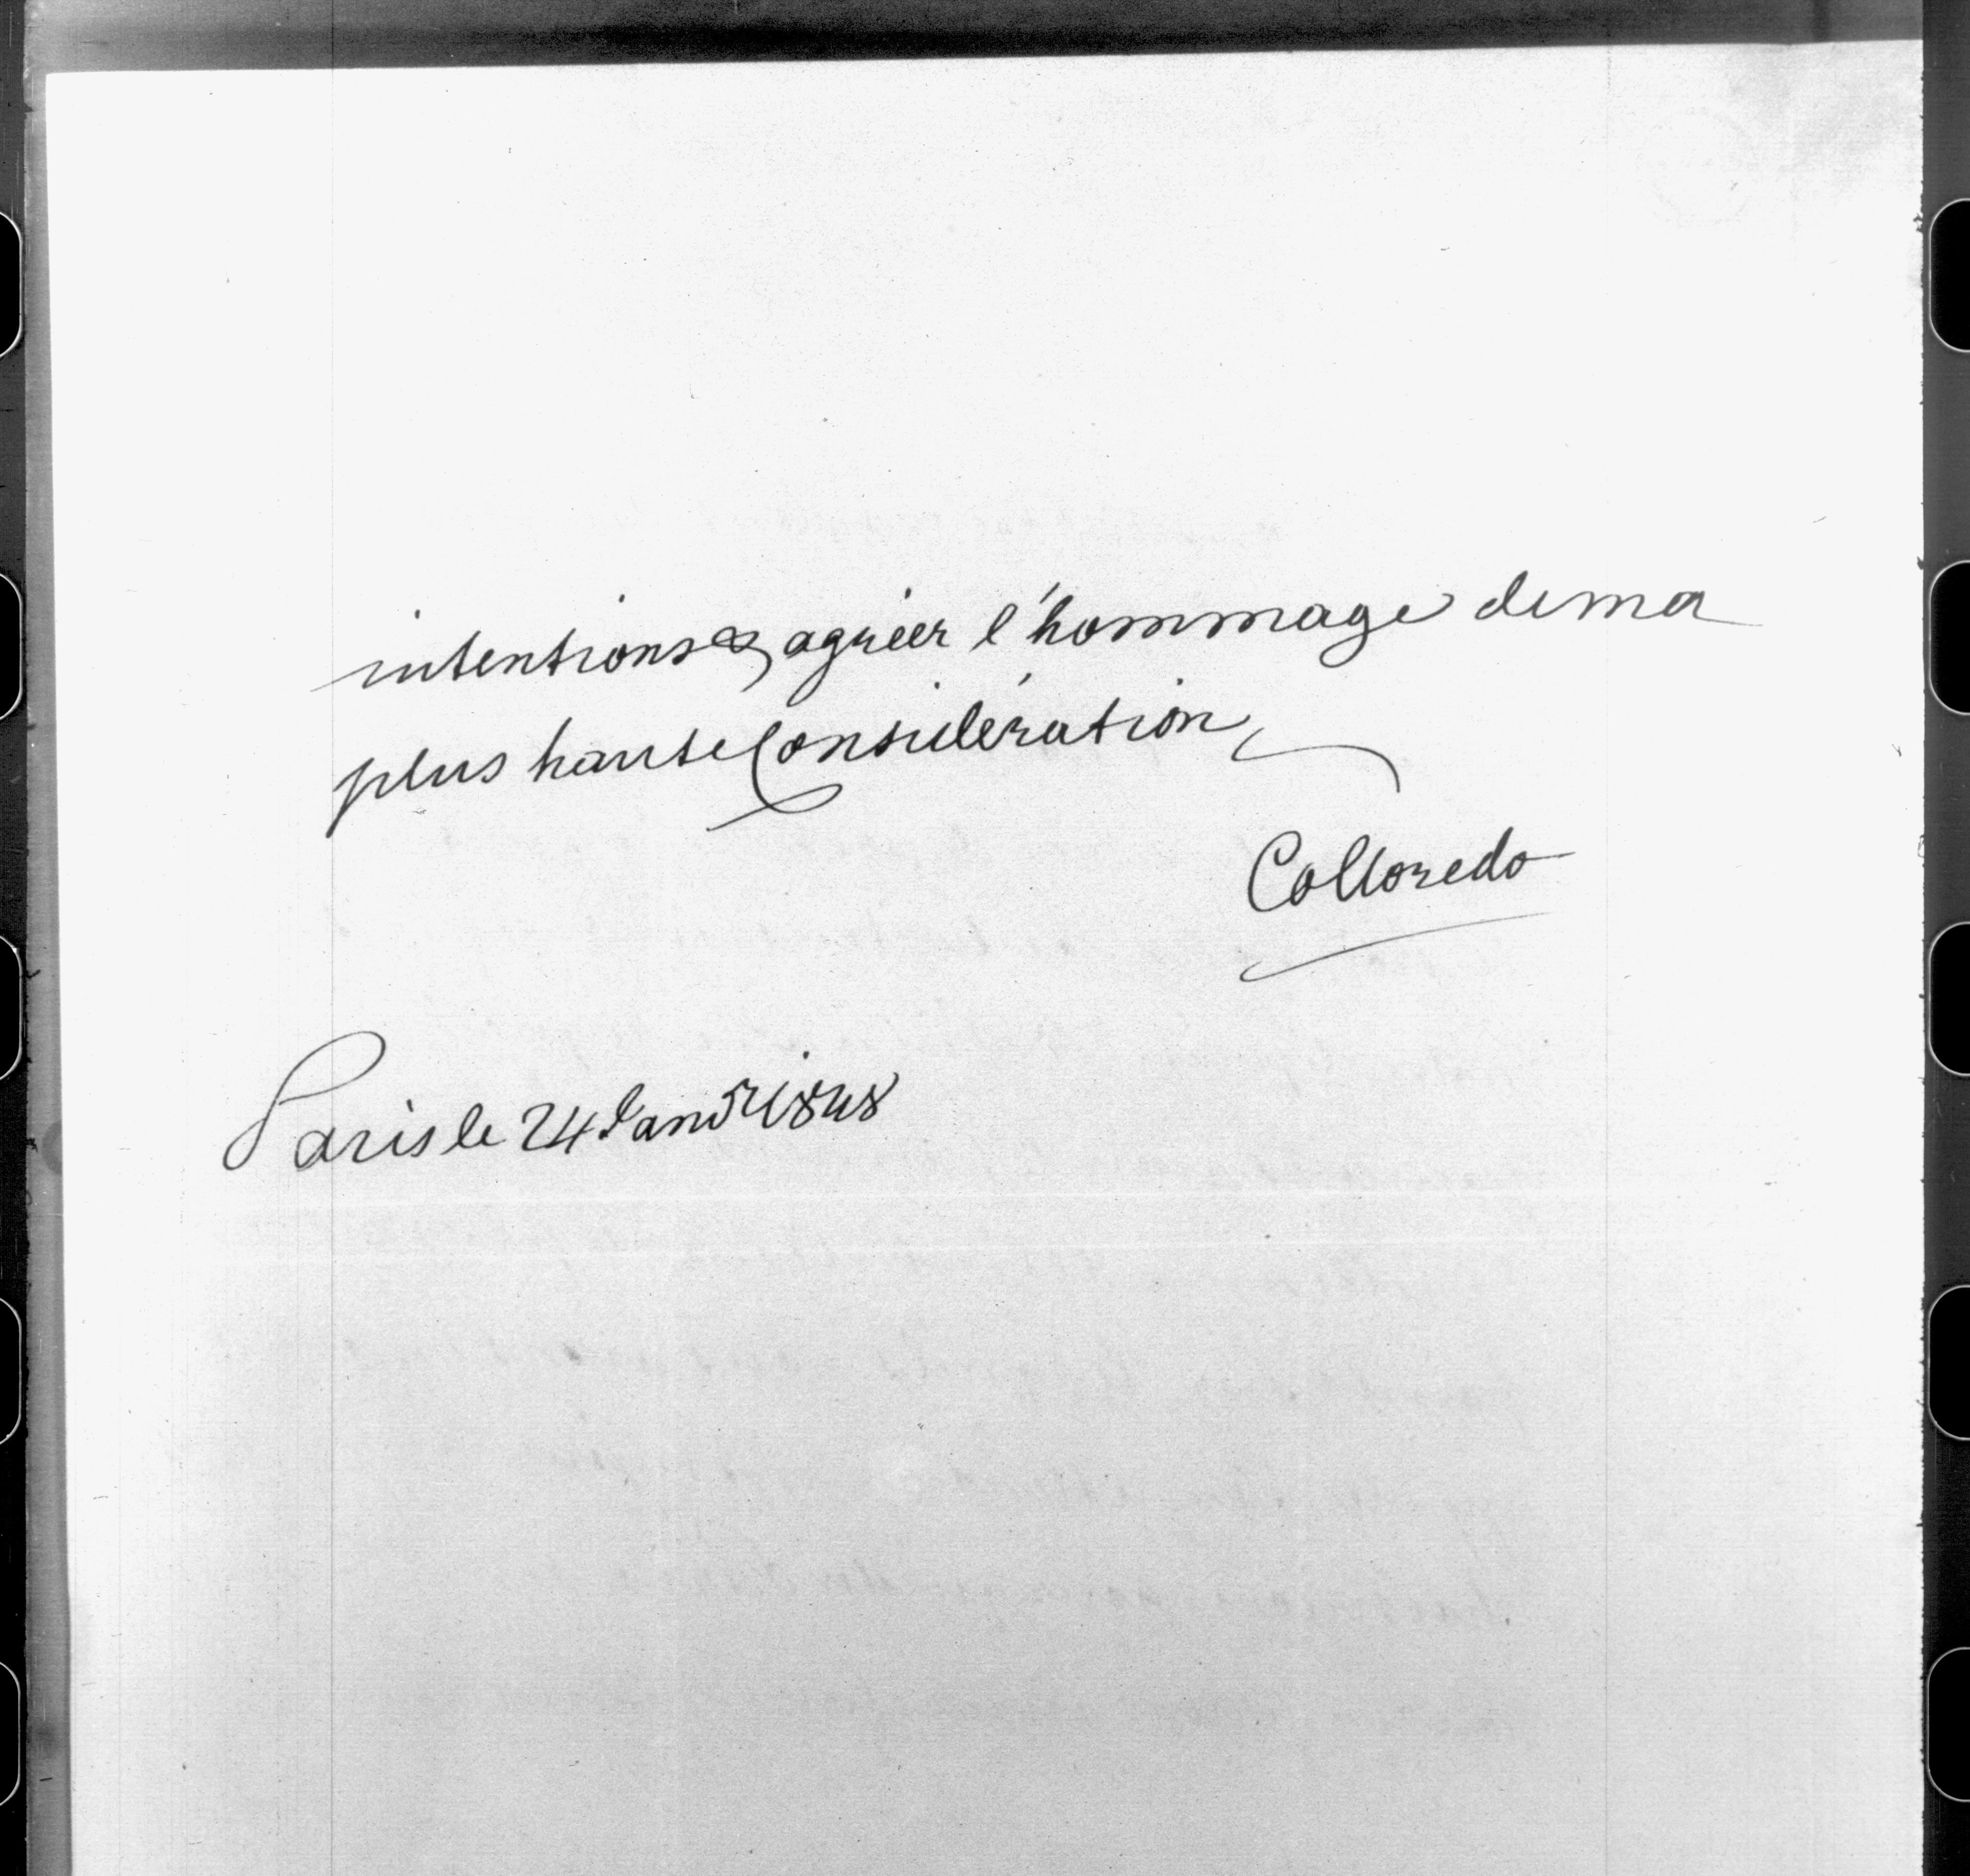 intentions & agréer l'hommage de ma
plus haute Considération,
Colloredo
Paris le 24 Janvr 1848